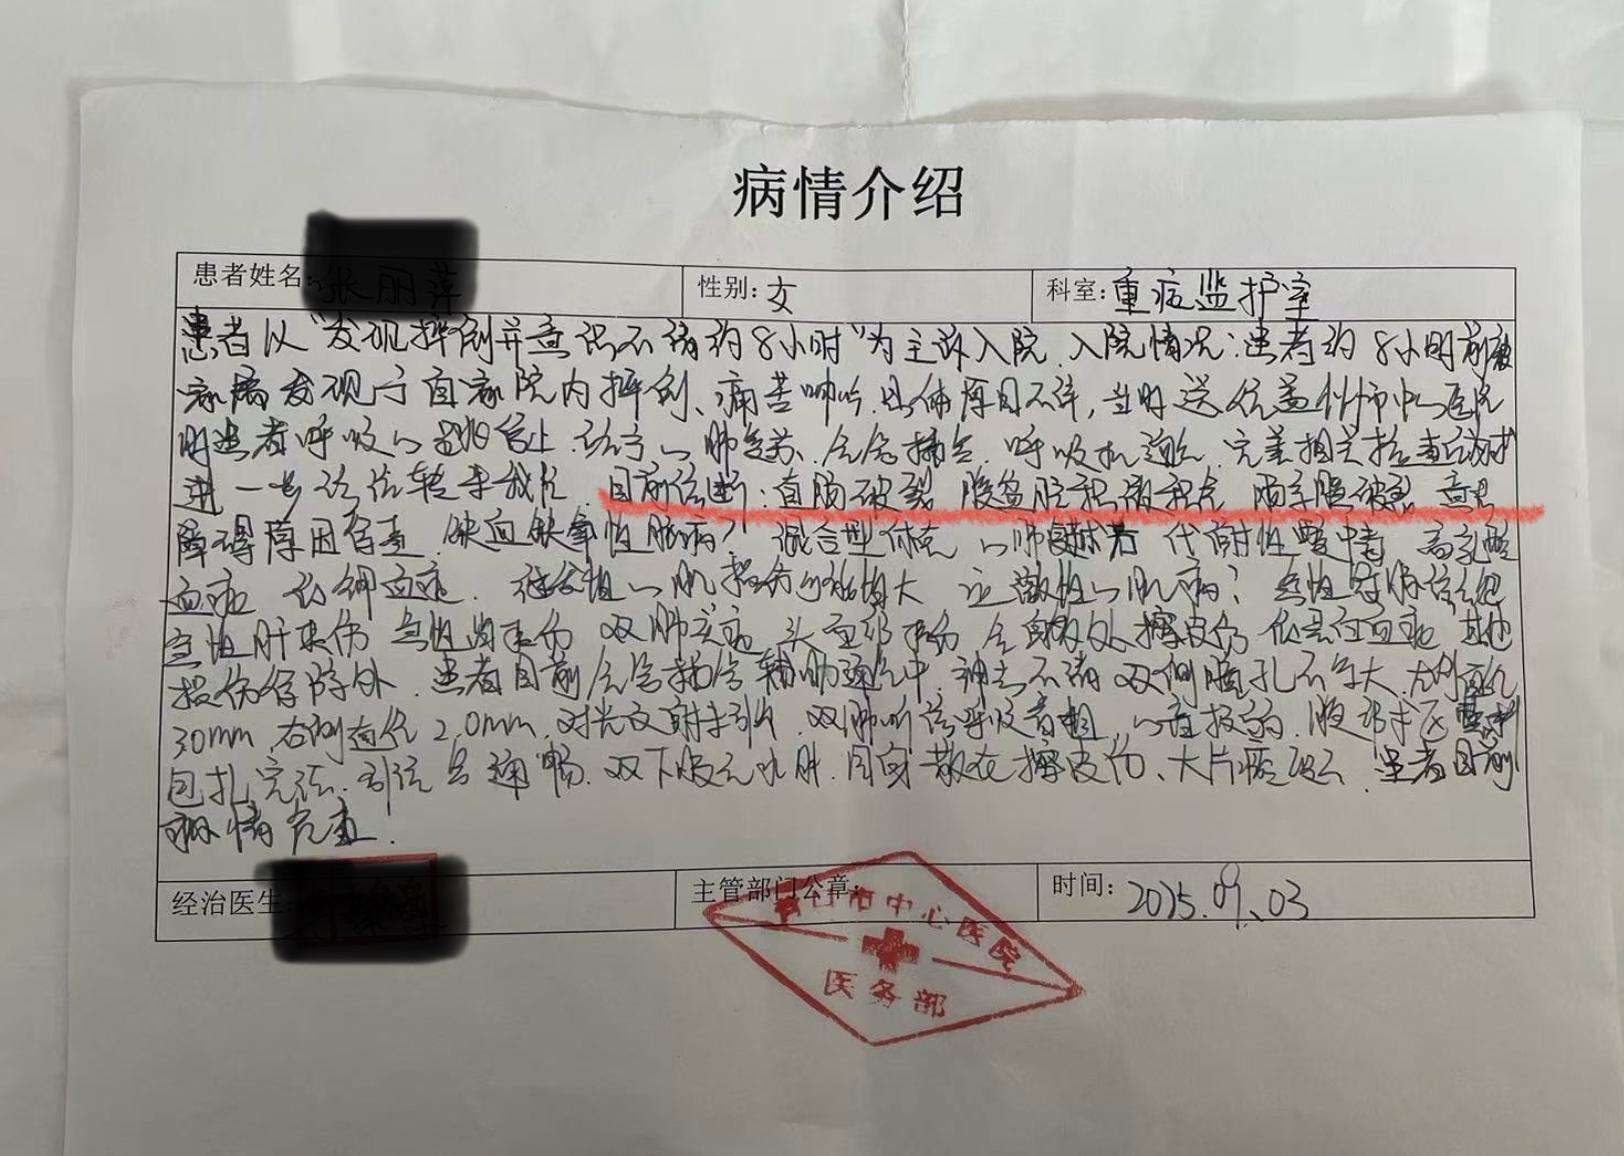 病情介绍
患者姓名:
性别: 女
科室: 重症监护室
患者以"发现摔倒并意识不清约8小时"为主诉入院. 入院情况:患者约8小时前被
家属发现于自家院内摔倒、痛苦呻吟, 具体原因不详, 当时送往盖州市中心医院
时患者呼吸心跳停止. 给予心肺复苏、气管插管、呼吸机通气, 完善相关检查后为求
进一步诊治转来我院. 目前诊断: 直肠破裂 腹盆腔积液积气 肠系膜破裂 意识
障碍原因待查 缺血缺氧性脑病? 混合型休克 心肺复苏术后 代谢性酸中毒 高乳酸
血症 血症. 继发性心肌损伤 应激性心肌病?
急性肝损伤 急性肾损伤 双肺 头面部 全身多处擦皮伤 低蛋白血症 其他
损伤待除外. 患者目前气管插管辅助通气中, 神志不清, 双侧瞳孔不等大, 左侧直径
30mm, 右侧直径2.0mm, 对光反射未引出, 双肺听诊呼吸音粗, 心音 腹部术区
包扎完整, 引流管通畅. 双下肢无水肿. 周身散在擦皮伤、大片瘀斑. 患者目前
病情危重.
经治医生:
主管部门公章:
时间: 2025.09.03
市中心医院
医务部